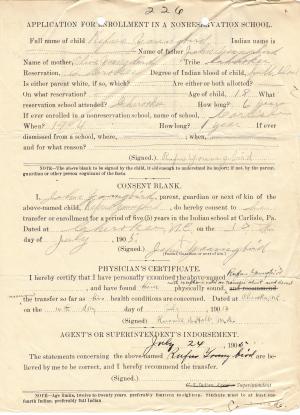 226
APPLICATION FOR ENROLLMENT IN A NONRESERVATION SCHOOL.
Full name of child Rufus Youngbird Indian name is
Name of father John Youngbird
Name of mother Youngbird Tribe Cherokee
Reservation, Cherokee Degree of Indian blood of child,
Is either parent white, if so, which? Are either or both allotted?
On what reservation? Age of child, 18 What
reservation school attended? Cherokee How long? 6 years
If ever enrolled in a nonreservation school, name of school, Carlisle
When? 1904 How long? 1 year If ever
dismissed from a school, where, , when,
and for what reason?
(Signed.) Rufus Youngbird
NOTE.—The above blank to be signed by the child, if old enough to understand its import; if not, by the parent, guardian or other person cognizant of the facts.
CONSENT BLANK.
I, John Youngbird, parent, guardian or next of kin of the
above-named child, Rufus Youngbird, do hereby consent to his
transfer or enrollment for a period of five (5) years in the Indian school at Carlisle, Pa.
Dated at Cherokee, N.C., on the
day of July, 1905.
(Signed.) John Youngbird
(Parent, Guardian or next of kin.)
PHYSICIAN'S CERTIFICATE.
I hereby certify that I have personally examined the above-named Rufus Youngbird
, and have found him physically sound,
the transfer so far as his health conditions are concerned. Dated at Cherokee, N.C.
on the day of July, 190
(Signed.)
AGENT'S OR SUPERINTENDENT'S INDORSEMENT.
July 24 190
The statements concerning the above-named Rufus Youngbird are be-
lieved by me to be correct, and I hereby recommend the transfer.
(Signed.)
Superintendent
NOTE—Age limits, twelve to twenty years, preferably fourteen to eighteen. Students must be at least one-fourth Indian: preferably full Indian